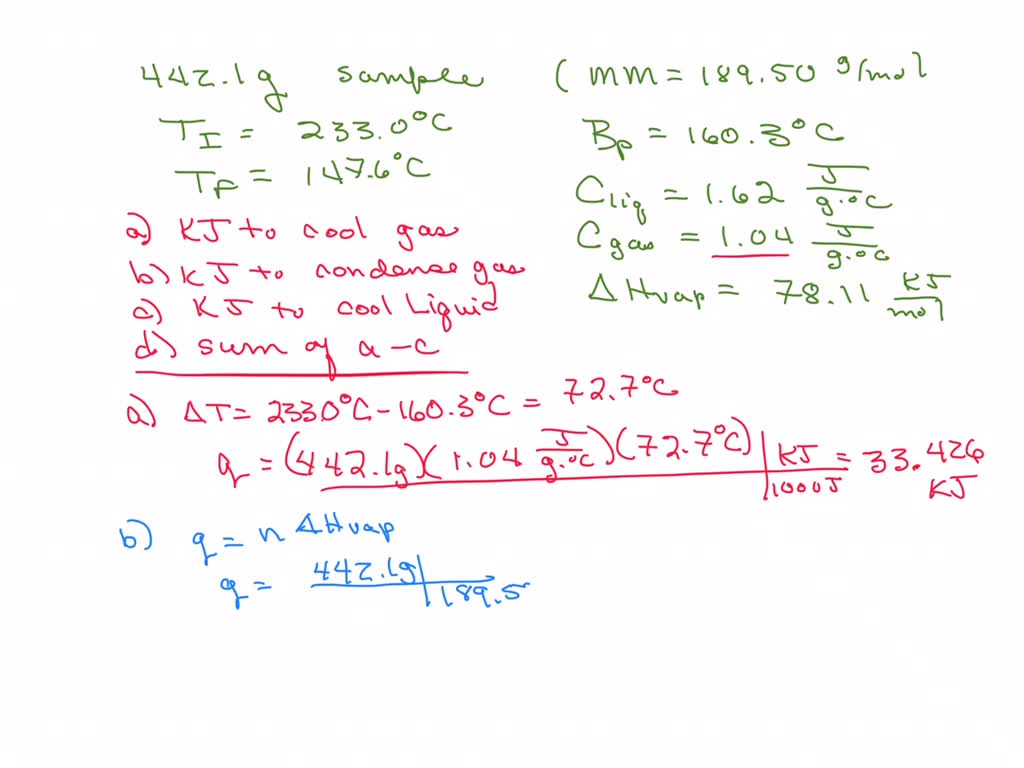 442.1g sample
T_I = 233.0°C
T_F = 147.6°C
(mm = 189.50 g/mol
Bp = 160.3°C
C_liq = 1.62 J/g.°C
C_gas = 1.04 J/g.°C
ΔHvap = 78.11 KJ/mol
a) KJ to cool gas
b) KJ to condense gas
c) KJ to cool Liquid
d) sum of a-c
a) ΔT = 2330°C - 160.3°C = 72.7°C
q = (442.1g)(1.04 J/g.°C)(72.7°C) | KJ/1000J = 33.426 KJ
b) q = n ΔHvap
q = 442.1g | /189.5